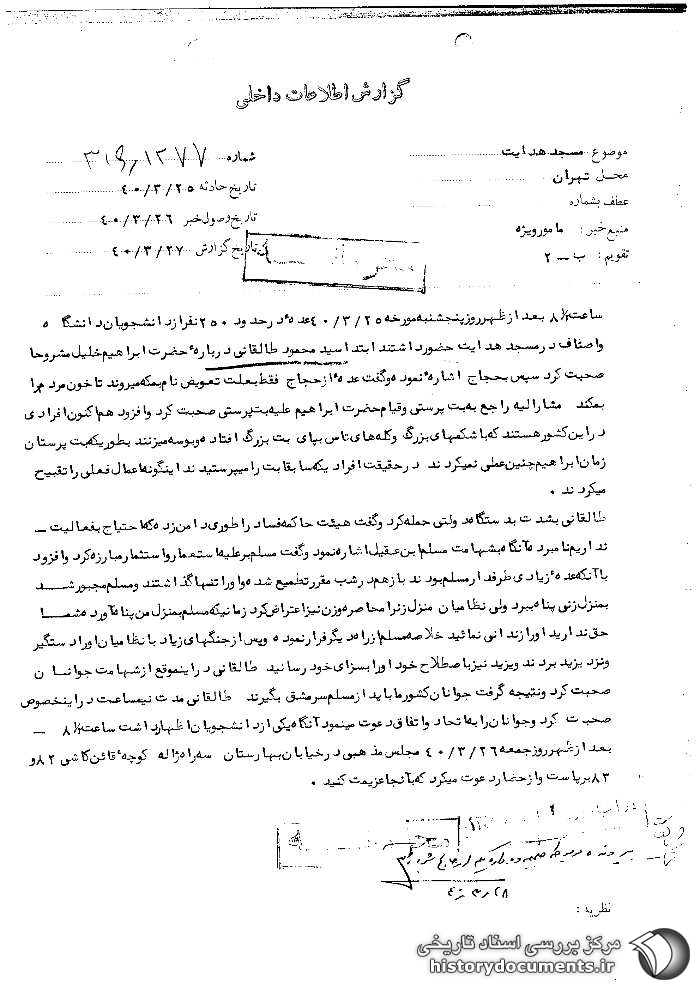 گزارش اطلاعات داخلی
موضوع مسجد هدایت
محل تهران
عطف بشماره
منبع خبر: مامور ویژه
تقویم: ب ــ ۲
شماره ۳۱۵/۱۲۷۷
تاریخ حادثه ۴۰/۳/۲۵
تاریخ وصول خبر ۴۰/۳/۲۶
تاریخ گزارش ۴۰/۳/۲۷
ساعت ۸½ بعد از ظهر روز پنجشنبه مورخه ۴۰/۳/۲۵ عده‌ در حدود ۲۵۰ نفر از دانشجویان دانشگاه
و اصناف در مسجد هدایت حضور داشتند ابتدا سید محمود طالقانی درباره حضرت ابراهیم خلیل مشروحا
صحبت کرد سپس بحجاج اشاره نموده و گفت عده از حجاج فقط بعلت تعویض نام بمکه میروند تا خون مردم را
بمکند مشارالیه راجع به بت پرستی و قیام حضرت ابراهیم علیه بت پرستی صحبت کرد و افزود هم اکنون افرادی
در این کشور هستند که با شکمهای بزرگ و کله‌های تاس بپای بت بزرگ افتاده و بوسه میزنند بطوریکه بت پرستان
زمان ابراهیم چنین عملی نمیکردند در حقیقت افرادیکه سابقا بت را میپرستیدند اینگونه اعمال فعلی را تقبیح
میکردند .
طالقانی بشدت بدستگاه دولتی حمله کرد و گفت هیئت حاکمه فساد را طوری دامن زده که احتیاج بفعالیت ــ
نداریم نامبرده آنگاه بشهامت مسلم ابن عقیل اشاره نمود و گفت مسلم بر علیه استعمار و استثمار مبارزه کرد و افزود
با آنکه عده زیادی طرفدار مسلم بودند باز هم در شب مقرر تطمیع شده و او را تنها گذاشتند و مسلم مجبور شد
بمنزل زنی پناه ببرد ولی نظامیان منزل زن را محاصره و زن نیز اعتراض کرد زمانیکه مسلم بمنزل من پناه آورده شما
حق ندارید او را زندانی نمائید خلاصه مسلم از راه دیگر فرار نموده و پس از جنگهای زیاد با نظامیان او را دستگیر
و نزد یزید بردند و یزید نیز باصطلاح خود او را بسزای خود رسانید طالقانی در اینموقع از شهامت جوانان
صحبت کرد و نتیجه گرفت جوانان کشور ما باید از مسلم سرمشق بگیرند طالقانی مدت نیمساعت در اینخصوص
صحبت کرد و جوانان را به اتحاد و اتفاق دعوت مینمود آنگاه یکی از دانشجویان اظهار داشت ساعت ۸½ ــ
بعد از ظهر روز جمعه ۴۰/۳/۲۶ مجلس مذهبی در خیابان بهارستان سه راه ژاله کوچه قائن کاشی ۸۲ و
۸۳ برپاست و از حضار دعوت میکرد که بآنجا عزیمت کنید .
پرونده
۴۰/۳/۲۸
نظریه :
مرکز بررسی اسناد تاریخی
historydocuments.ir